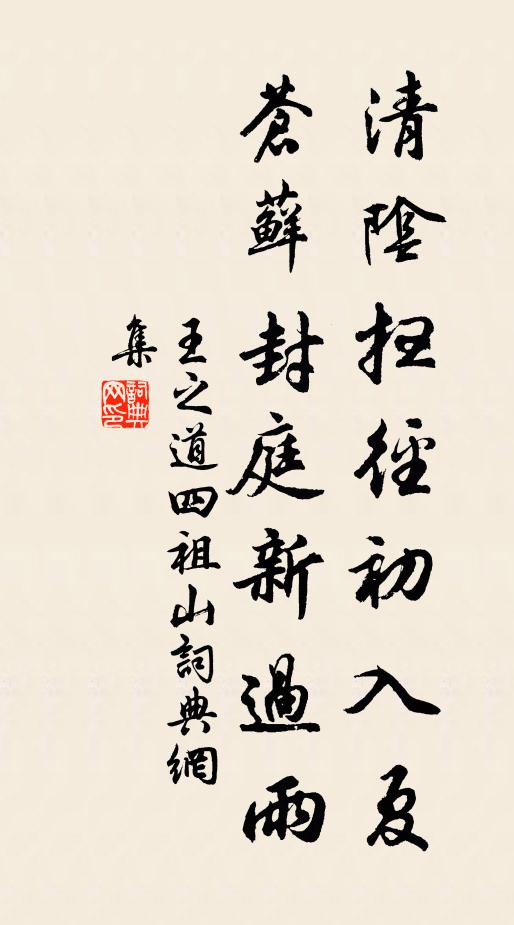 清陰扫径初入夏
蒼蘚封庭新過雨
王之道四祖山詞典網
集
詞典網印